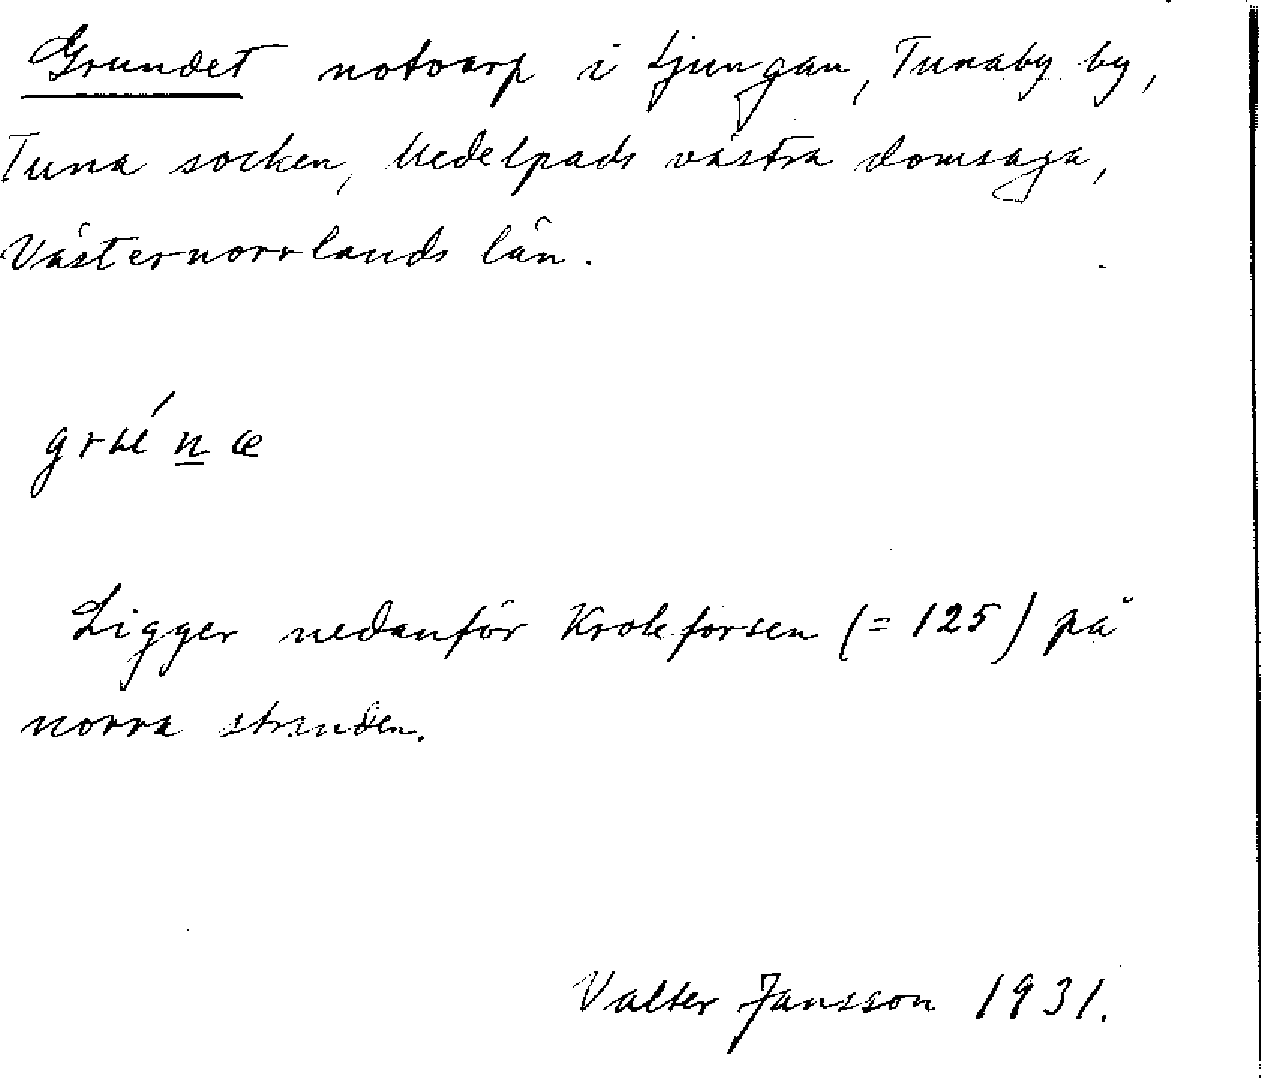 Grundet notvarp i Ljungan, Tunaby by,
Tuna socken, Medelpads västra domsaga,
Västernorrlands län.
Ligger nedanför Krokforsen (= 125) på
norra stranden.
Valter Jansson 1931.